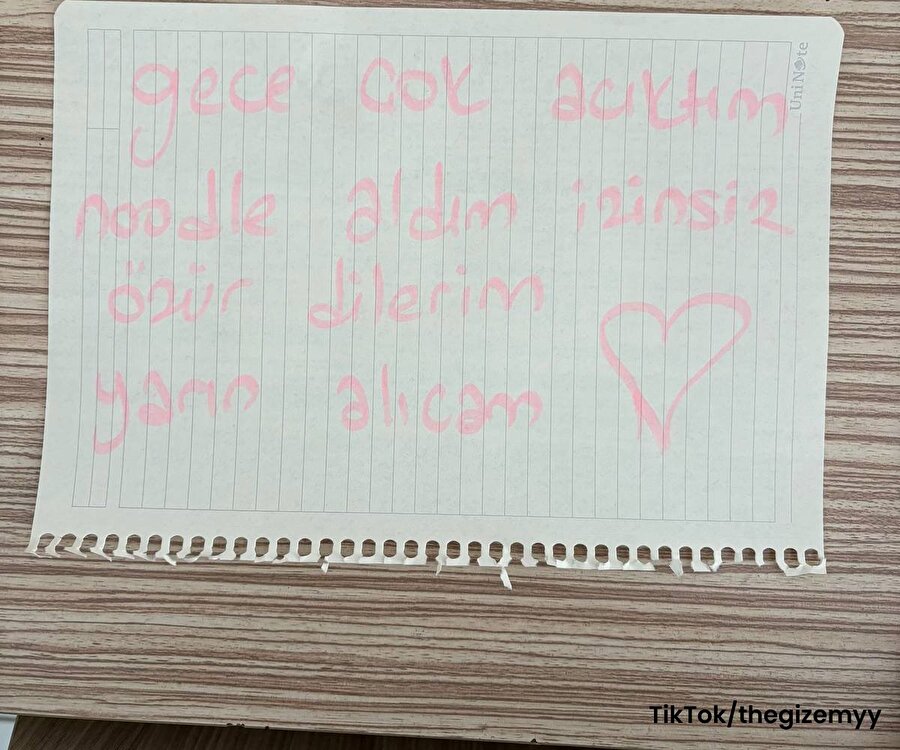 gece cok acıktım
noodle aldım izinsiz
özür dilerim
yarın alıcam
UniNote
TikTok/thegizemyy